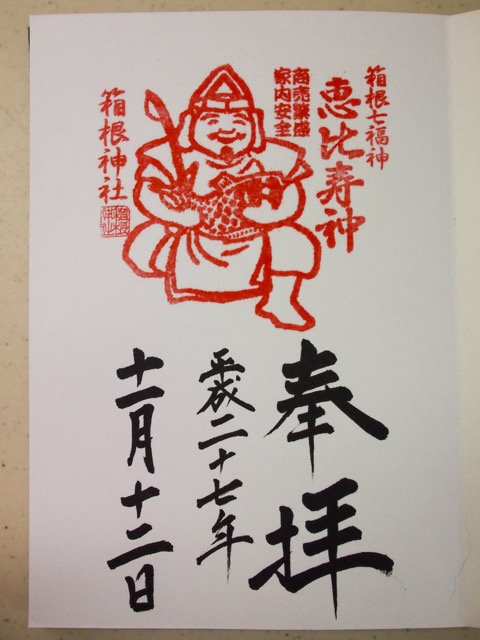 箱根七福神
恵比寿神
商売繁盛
家内安全
箱根神社
奉拝
平成二十七年
十一月十二日